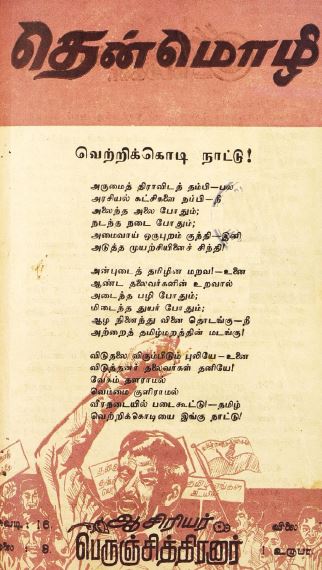 தென்மொழி
வெற்றிக்கொடி நாட்டு!
அருமைத் திராவிடத் தம்பி—பல
அரசியல் கட்சிகளை நம்பி—நீ
அலைந்த அலை போதும்;
நடந்த நடை போதும்;
அமைவாய் ஒருபுறம் குந்தி—இனி
அடுத்த முயற்சியினைச் சிந்தி!
அன்புடைத் தமிழின மறவ!—உனை
ஆண்ட தலைவர்களின் உறவால்
அடைந்த பழி போதும்;
மிடைந்த துயர் போதும்;
ஆழ நினைந்து வினை தொடங்கு—நீ
அற்றைத் தமிழ்மறத்தின் மடங்கு!
விடுதலை விரும்பிடும் புலியே—உனை
விடுத்தனர் தலைவர்கள் தனியே!
வேகம் தளராமல்
வெம்மை குளிராமல்
வீரநடையில் படைகூட்டு!—தமிழ்
வெற்றிக்கொடியை இங்கு நாட்டு!
ஆசிரியர்
பெருஞ்சித்திரனார்
சுவடி: 16,
ஓலை : 9.
விலை
1 உருபா.